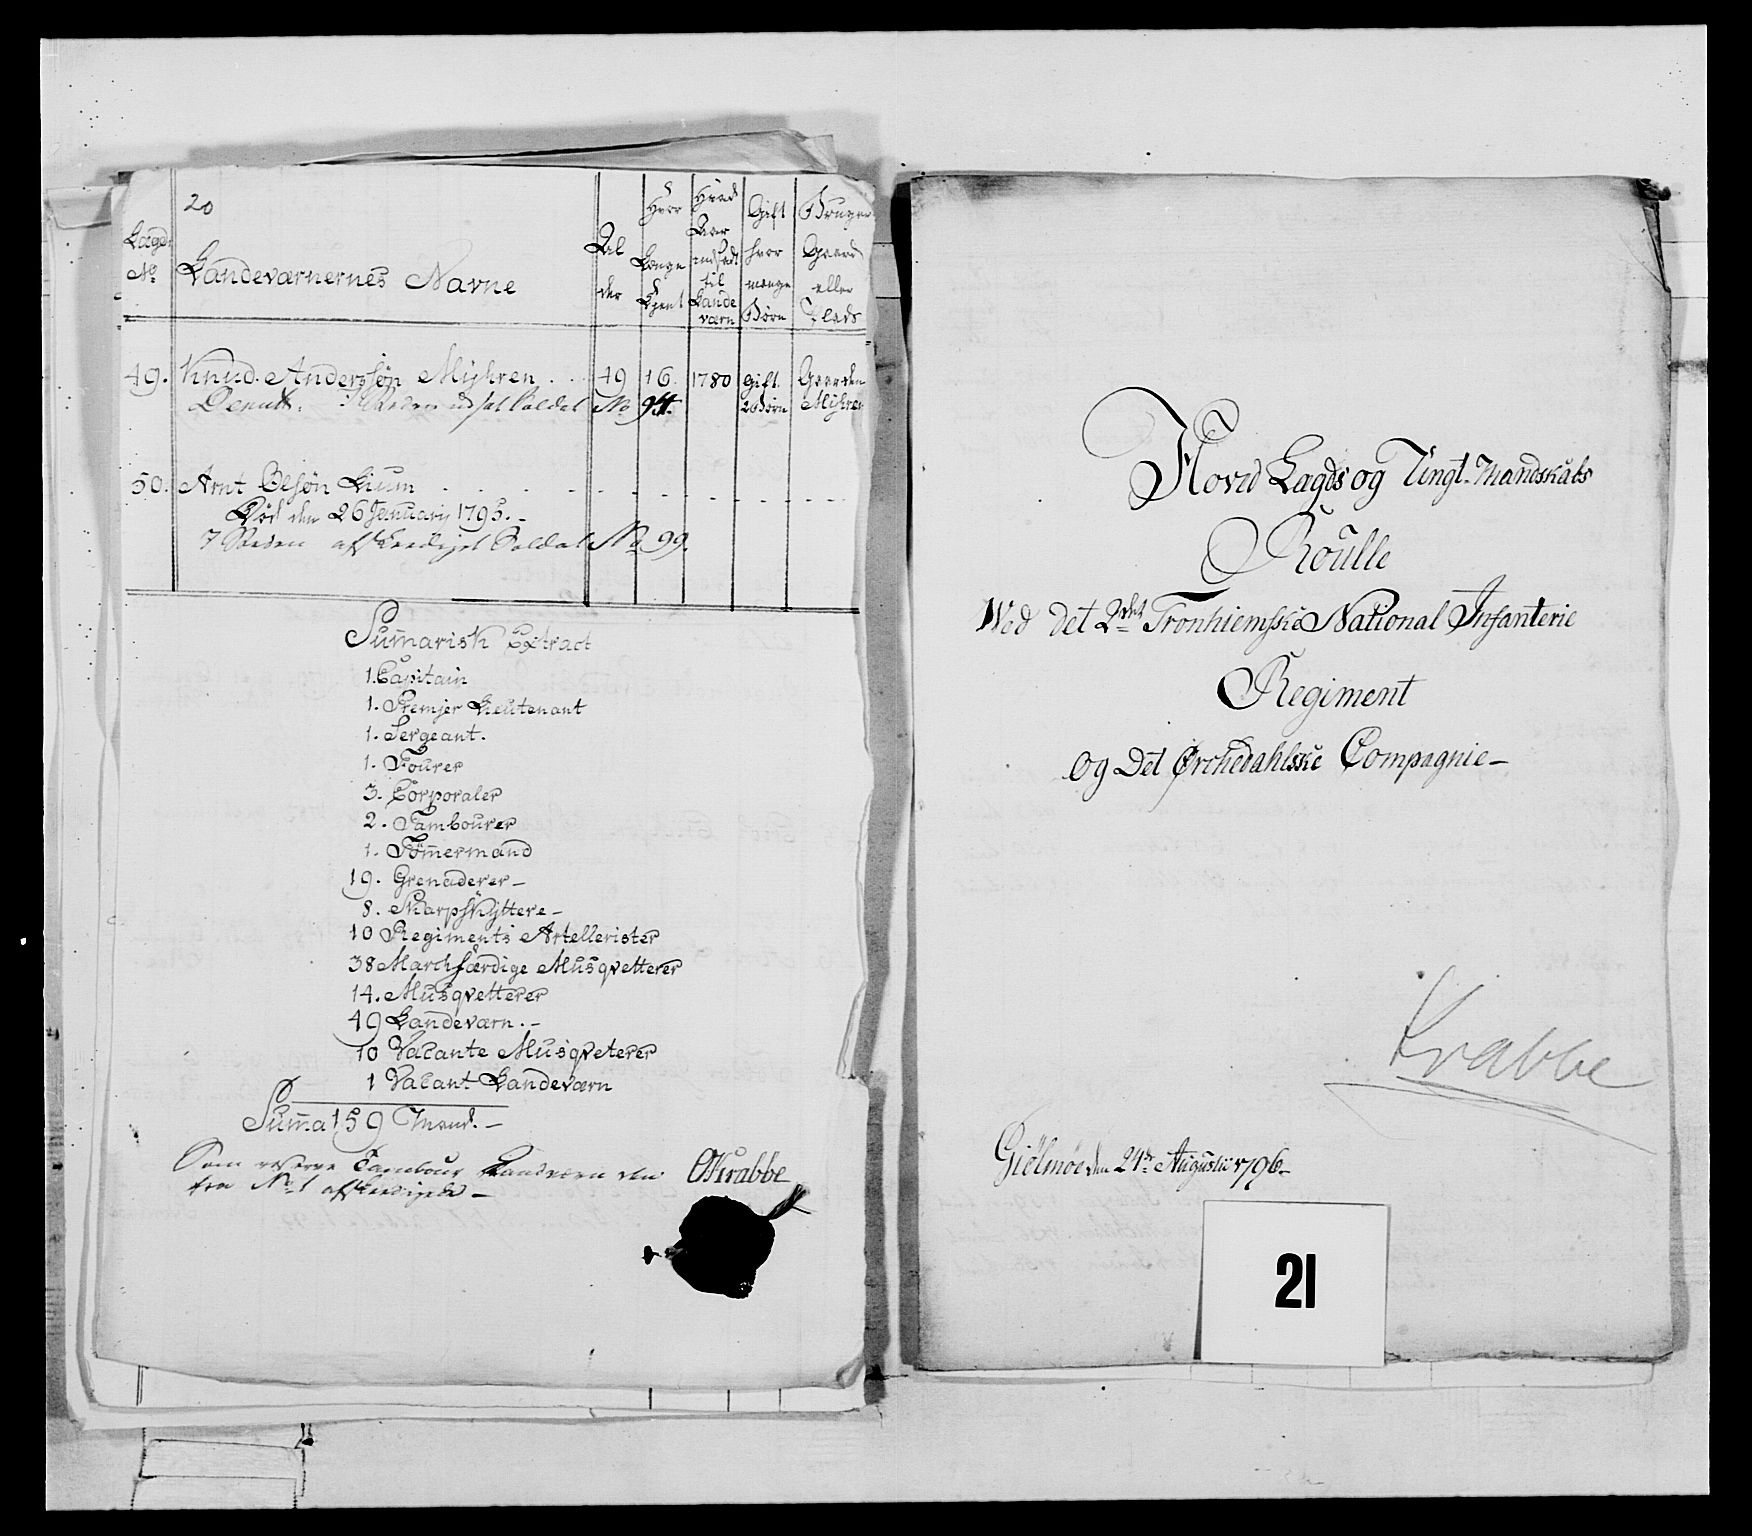 20
Lægd: No
Landeværnernes Navne
Alder
Hvor Længe Tient
Hvad Aar indsadt til Landeværn
Gift hvor mange Børn
Bruger Gaard eller Plads
49. Knud Anderssøn Mijhren . . 49 16. 1780 Gift. 2 Børn Gaarden Mijhren
udsat Soldat No 94.
50. Arnt Olsøn Lium . . . . . . . . . .
Død den 26 Januarij 1795.-
afskeediget Soldat No 99.
Sum̄arisk Extract
1. Capitain
1. Premjer Lieutenant
1. Sergeant.
1. Fourer
3. Corporaler
2. Tambourer
1. Tøm̄ermand
19. Grenaderer-
8. Skarpskyttere-
10 Regiments Artellerister
38 Marchfærdige Musqvetterer
14. Musqvetterer
49 Landeværn.-
10 Vacante Musqveterer
1 Vacant Landeværn
Sum̄a 159 Mand.-
Som reserve Tambour Landværn den
fra No 1 afskeedigede -
OKrabbe
Hoved Lægds og Ungt. Mandskabs
Roulle
Wed det 2det Tronhiemske National Infanterie
Regiment
Og Det Ørchedahlske Compagnie-
Krabbe
Giølmøe den 24de Augustii 1796-
21